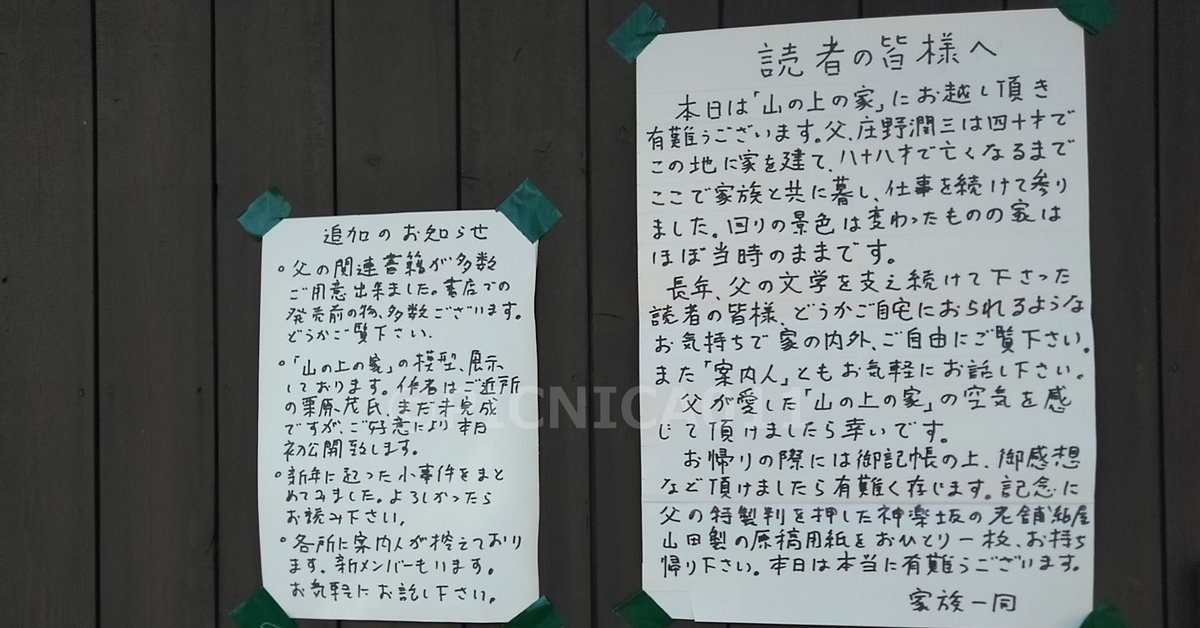 読者の皆様へ
本日は「山の上の家」にお越し頂き
有難うございます。父、庄野潤三は四十才で
この地に家を建て、八十八才で亡くなるまで
ここで家族と共に暮し、仕事を続けて参り
ました。回りの景色は変わったものの家は
ほぼ当時のままです。
長年、父の文学を支え続けて下さった
読者の皆様、どうかご自宅におられるような
お気持ちで家の内外、ご自由にご覧下さい。
また「案内人」ともお気軽にお話し下さい。
父が愛した「山の上の家」の空気を感
じて頂けましたら幸いです。
お帰りの際には御記帳の上、御感想
など頂けましたら有難く存じます。記念に
父の特製判を押した神楽坂の老舗紙屋
山田製の原稿用紙をおひとり一枚、お持ち
帰り下さい。本日は本当に有難うございます。
家族一同
追加のお知らせ
。父の関連書籍が多数
ご用意出来ました。書店での
発売前の物、多数ございます。
どうかご覧下さい、
。「山の上の家」の模型、展示
しております。作者はご近所
の栗原茂氏、まだ未完成
ですが、ご好意により本日
初公開致します。
。新年に起った小事件をまと
めてみました。よろしかったら
お読み下さい。
。各所に案内人が控えており
ます。新メンバーもいます。
お気軽にお話し下さい。